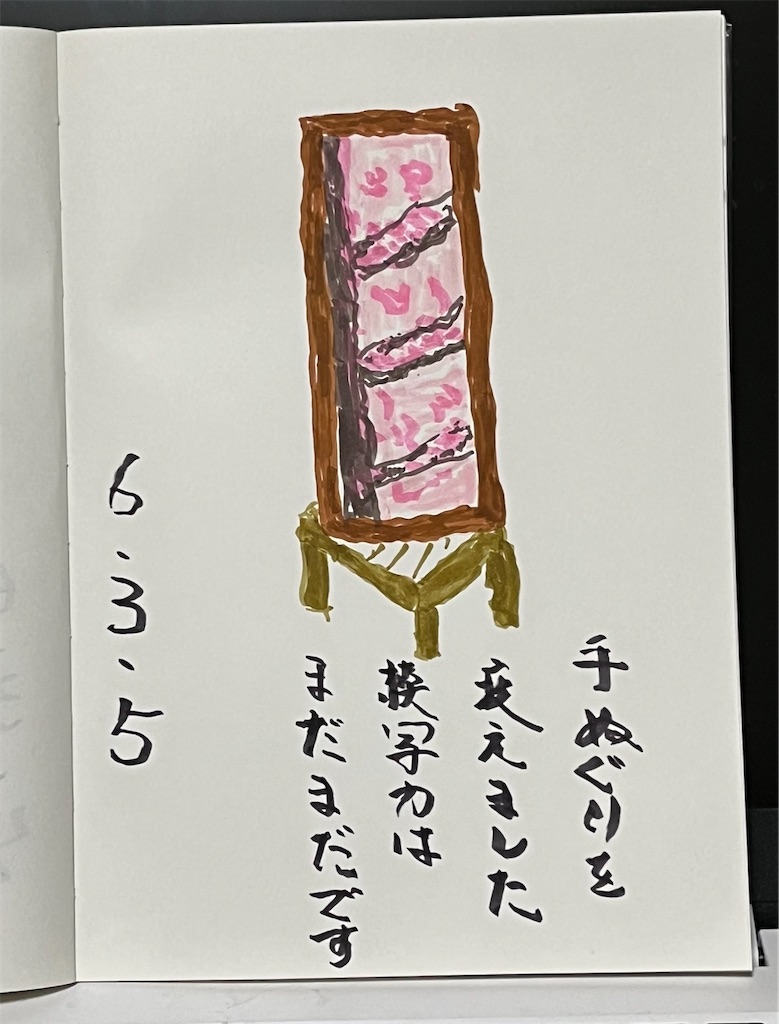 手ぬぐりを
変えました
模写力は
まだまだです
6.3.5